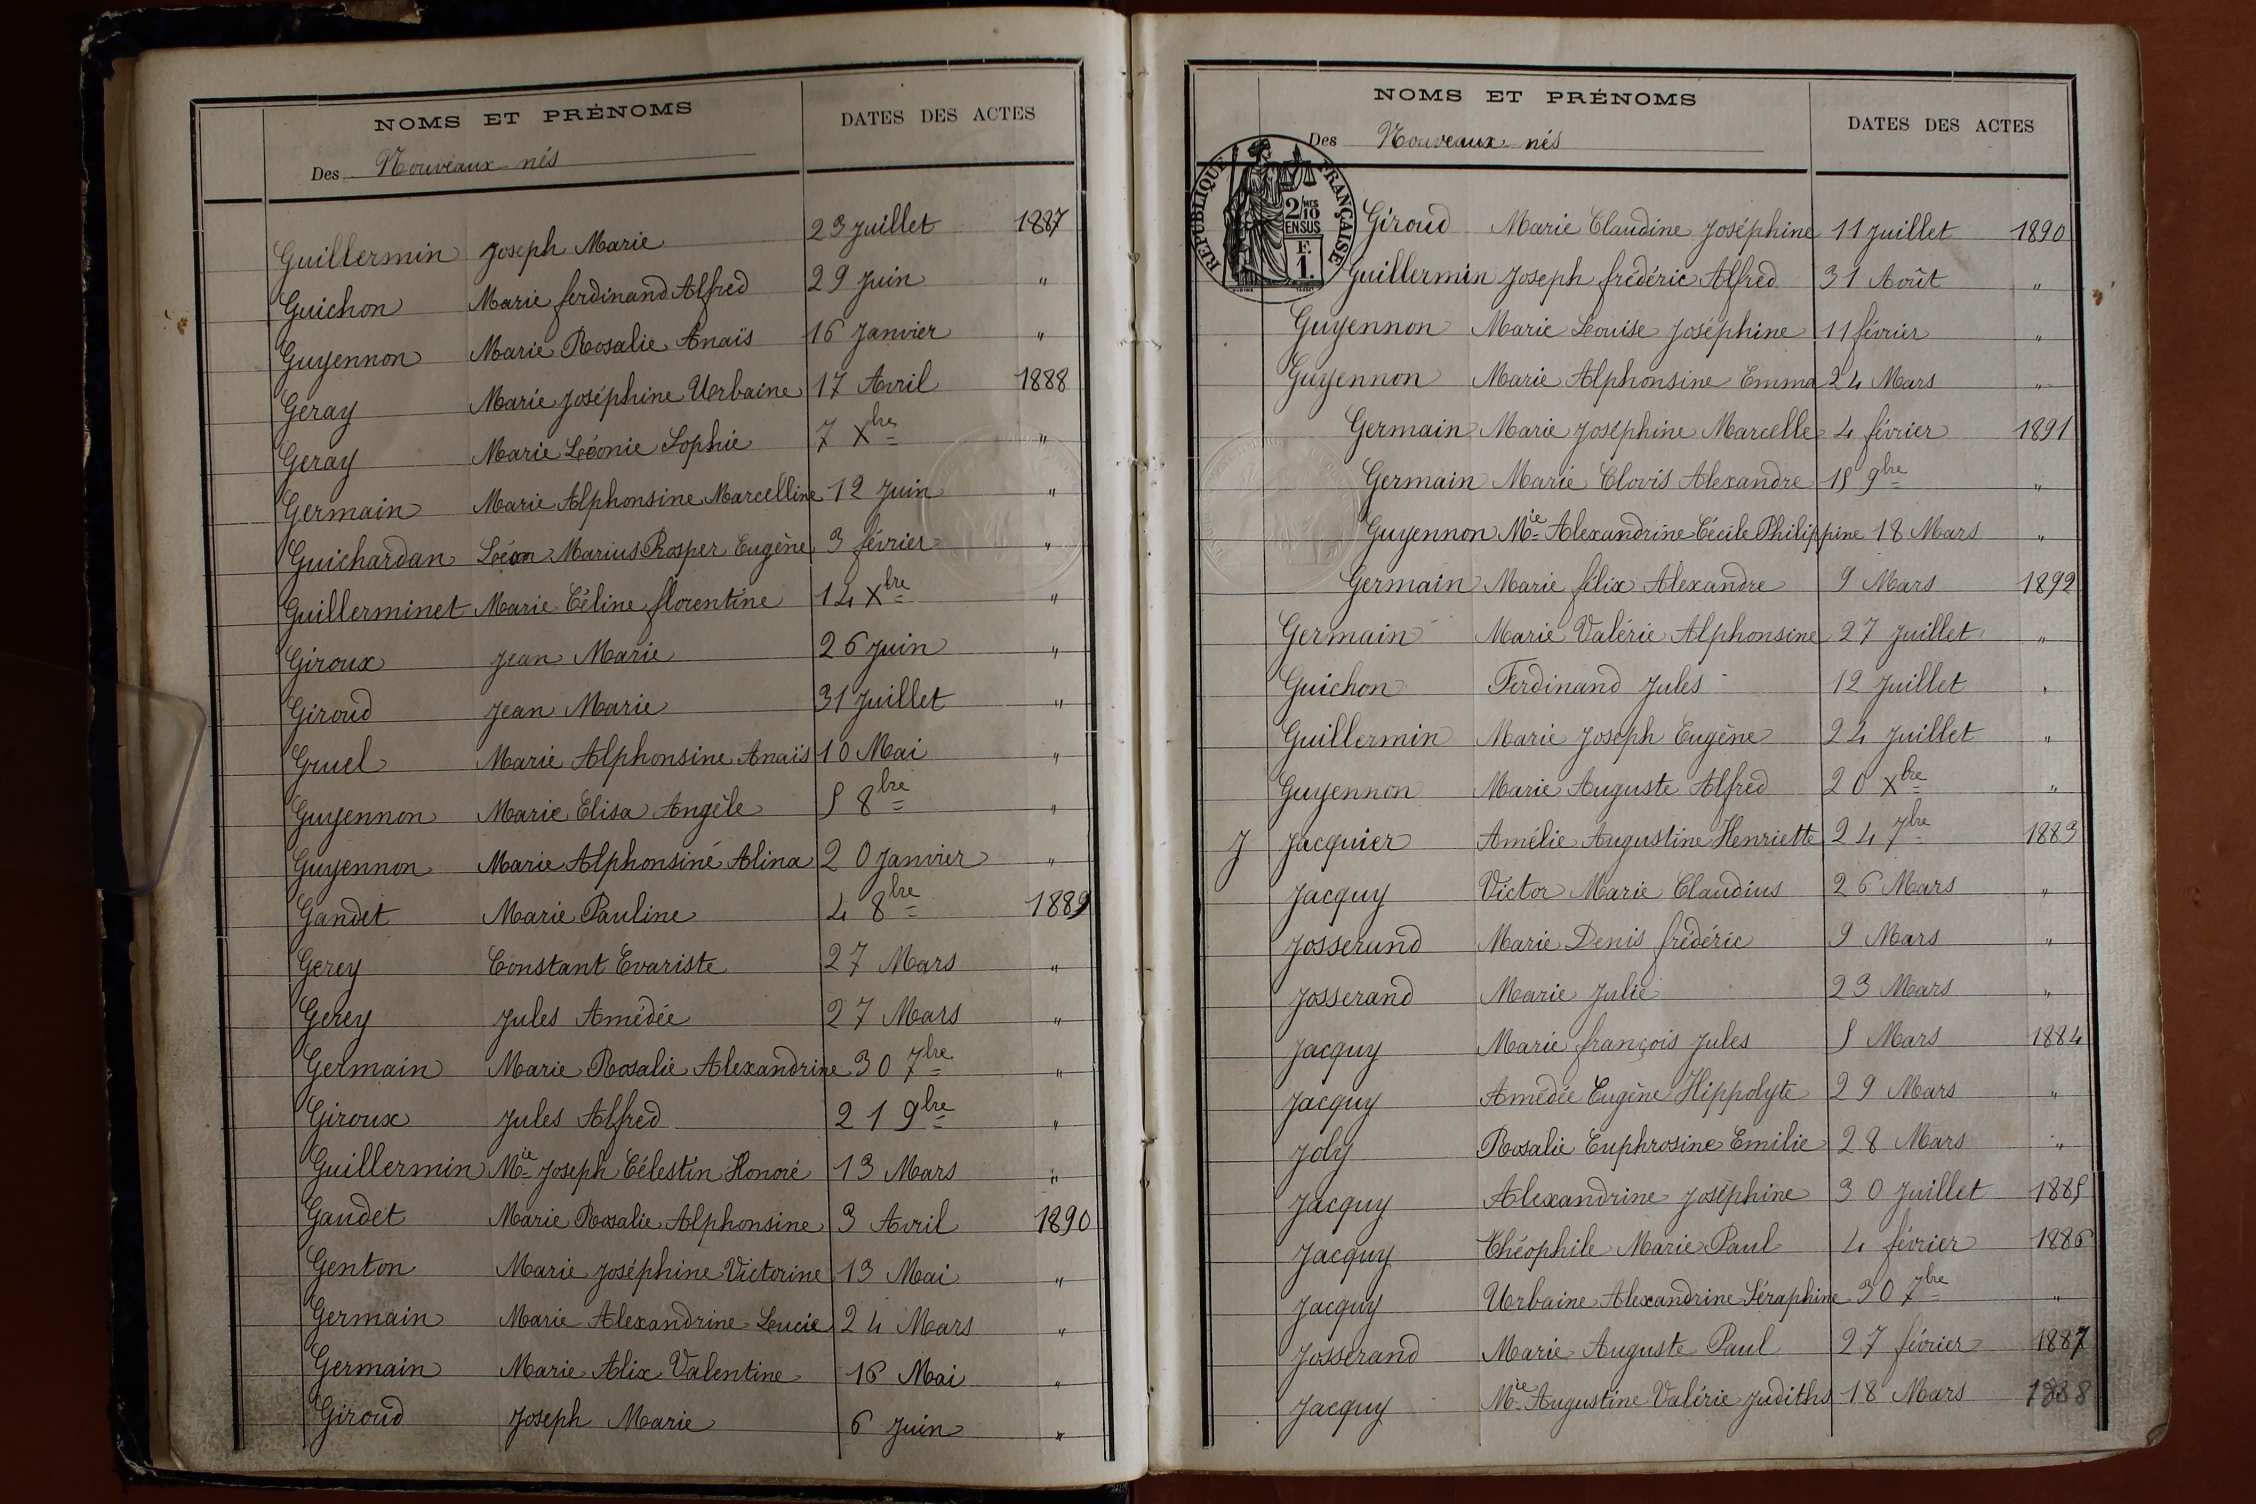 NOMS ET PRÉNOMS
DATES DES ACTES
Des Nouveaux nés
Guillermin Joseph Marie 23 Juillet 1887
Guichon Marie ferdinand Alfred 29 Juin "
Guyennon Marie Rosalie Anaïs 16 Janvier "
Geray Marie Joséphine Urbaine 17 Avril 1888
Geray Marie Léonie Sophie 7 Xbre "
Germain Marie Alphonsine Marcelline 12 Juin "
Guichardan Léon Marius Prosper Eugène 3 février "
Guillerminet Marie Céline florentine 14 Xbre "
Giroux Jean Marie 26 Juin "
Giroud Jean Marie 31 Juillet "
Gruel Marie Alphonsine Anaïs 10 Mai "
Guyennon Marie Elisa Angèle 5 8bre "
Guyennon Marie Alphonsine Alina 20 Janvier "
Gandet Marie Pauline 4 8bre 1889
Gerey Constant Evariste 27 Mars "
Gerey Jules Amédée 27 Mars "
Germain Marie Rosalie Alexandrine 30 7bre "
Giroux Jules Alfred 21 9bre "
Guillermin Mie Joseph Célestin Honoré 13 Mars "
Gaudet Marie Rosalie Alphonsine 3 Avril 1890
Genton Marie Joséphine Victorine 13 Mai "
Germain Marie Alexandrine Lucie 24 Mars "
Germain Marie Alix Valentine 16 Mai "
Giroud Joseph Marie 6 Juin "
NOMS ET PRÉNOMS
DATES DES ACTES
Des Nouveaux nés
RÉPUBLIQUE FRANÇAISE
2/10 MES
EN SUS
F.
1.
Giroud Marie Claudine Joséphine 11 Juillet 1890
Guillermin Joseph frédéric Alfred 31 Août "
Guyennon Marie Louise Joséphine 11 février "
Guyennon Marie Alphonsine Emma 24 Mars "
Germain Marie Joséphine Marcelle 4 février 1891
Germain Marie Clovis Alexandre 15 9bre "
Guyennon Mie Alexandrine Cécile Philippine 18 Mars "
Germain Marie félix Alexandre 9 Mars 1892
Germain Marie Valérie Alphonsine 27 Juillet "
Guichon Ferdinand Jules 12 Juillet "
Guillermin Marie Joseph Eugène 24 Juillet "
Guyennon Marie Auguste Alfred 20 Xbre "
J Jacquier Amélie Augustine Henriette 24 7bre 1883
Jacquy Victor Marie Claudius 26 Mars "
Josserand Marie Denis frédéric 9 Mars "
Josserand Marie Julie 23 Mars "
Jacquy Marie françois Jules 5 Mars 1884
Jacquy Amédée Eugène Hippolyte 29 Mars "
Joly Rosalie Euphrosine Emilie 28 Mars "
Jacquy Alexandrine Joséphine 30 Juillet 1885
Jacquy Théophile Marie Paul 4 février 1886
Jacquy Urbaine Alexandrine Séraphine 30 7bre "
Josserand Marie Auguste Paul 27 février 1887
Jacquy Mie Augustine Valérie Judiths 18 Mars 1888